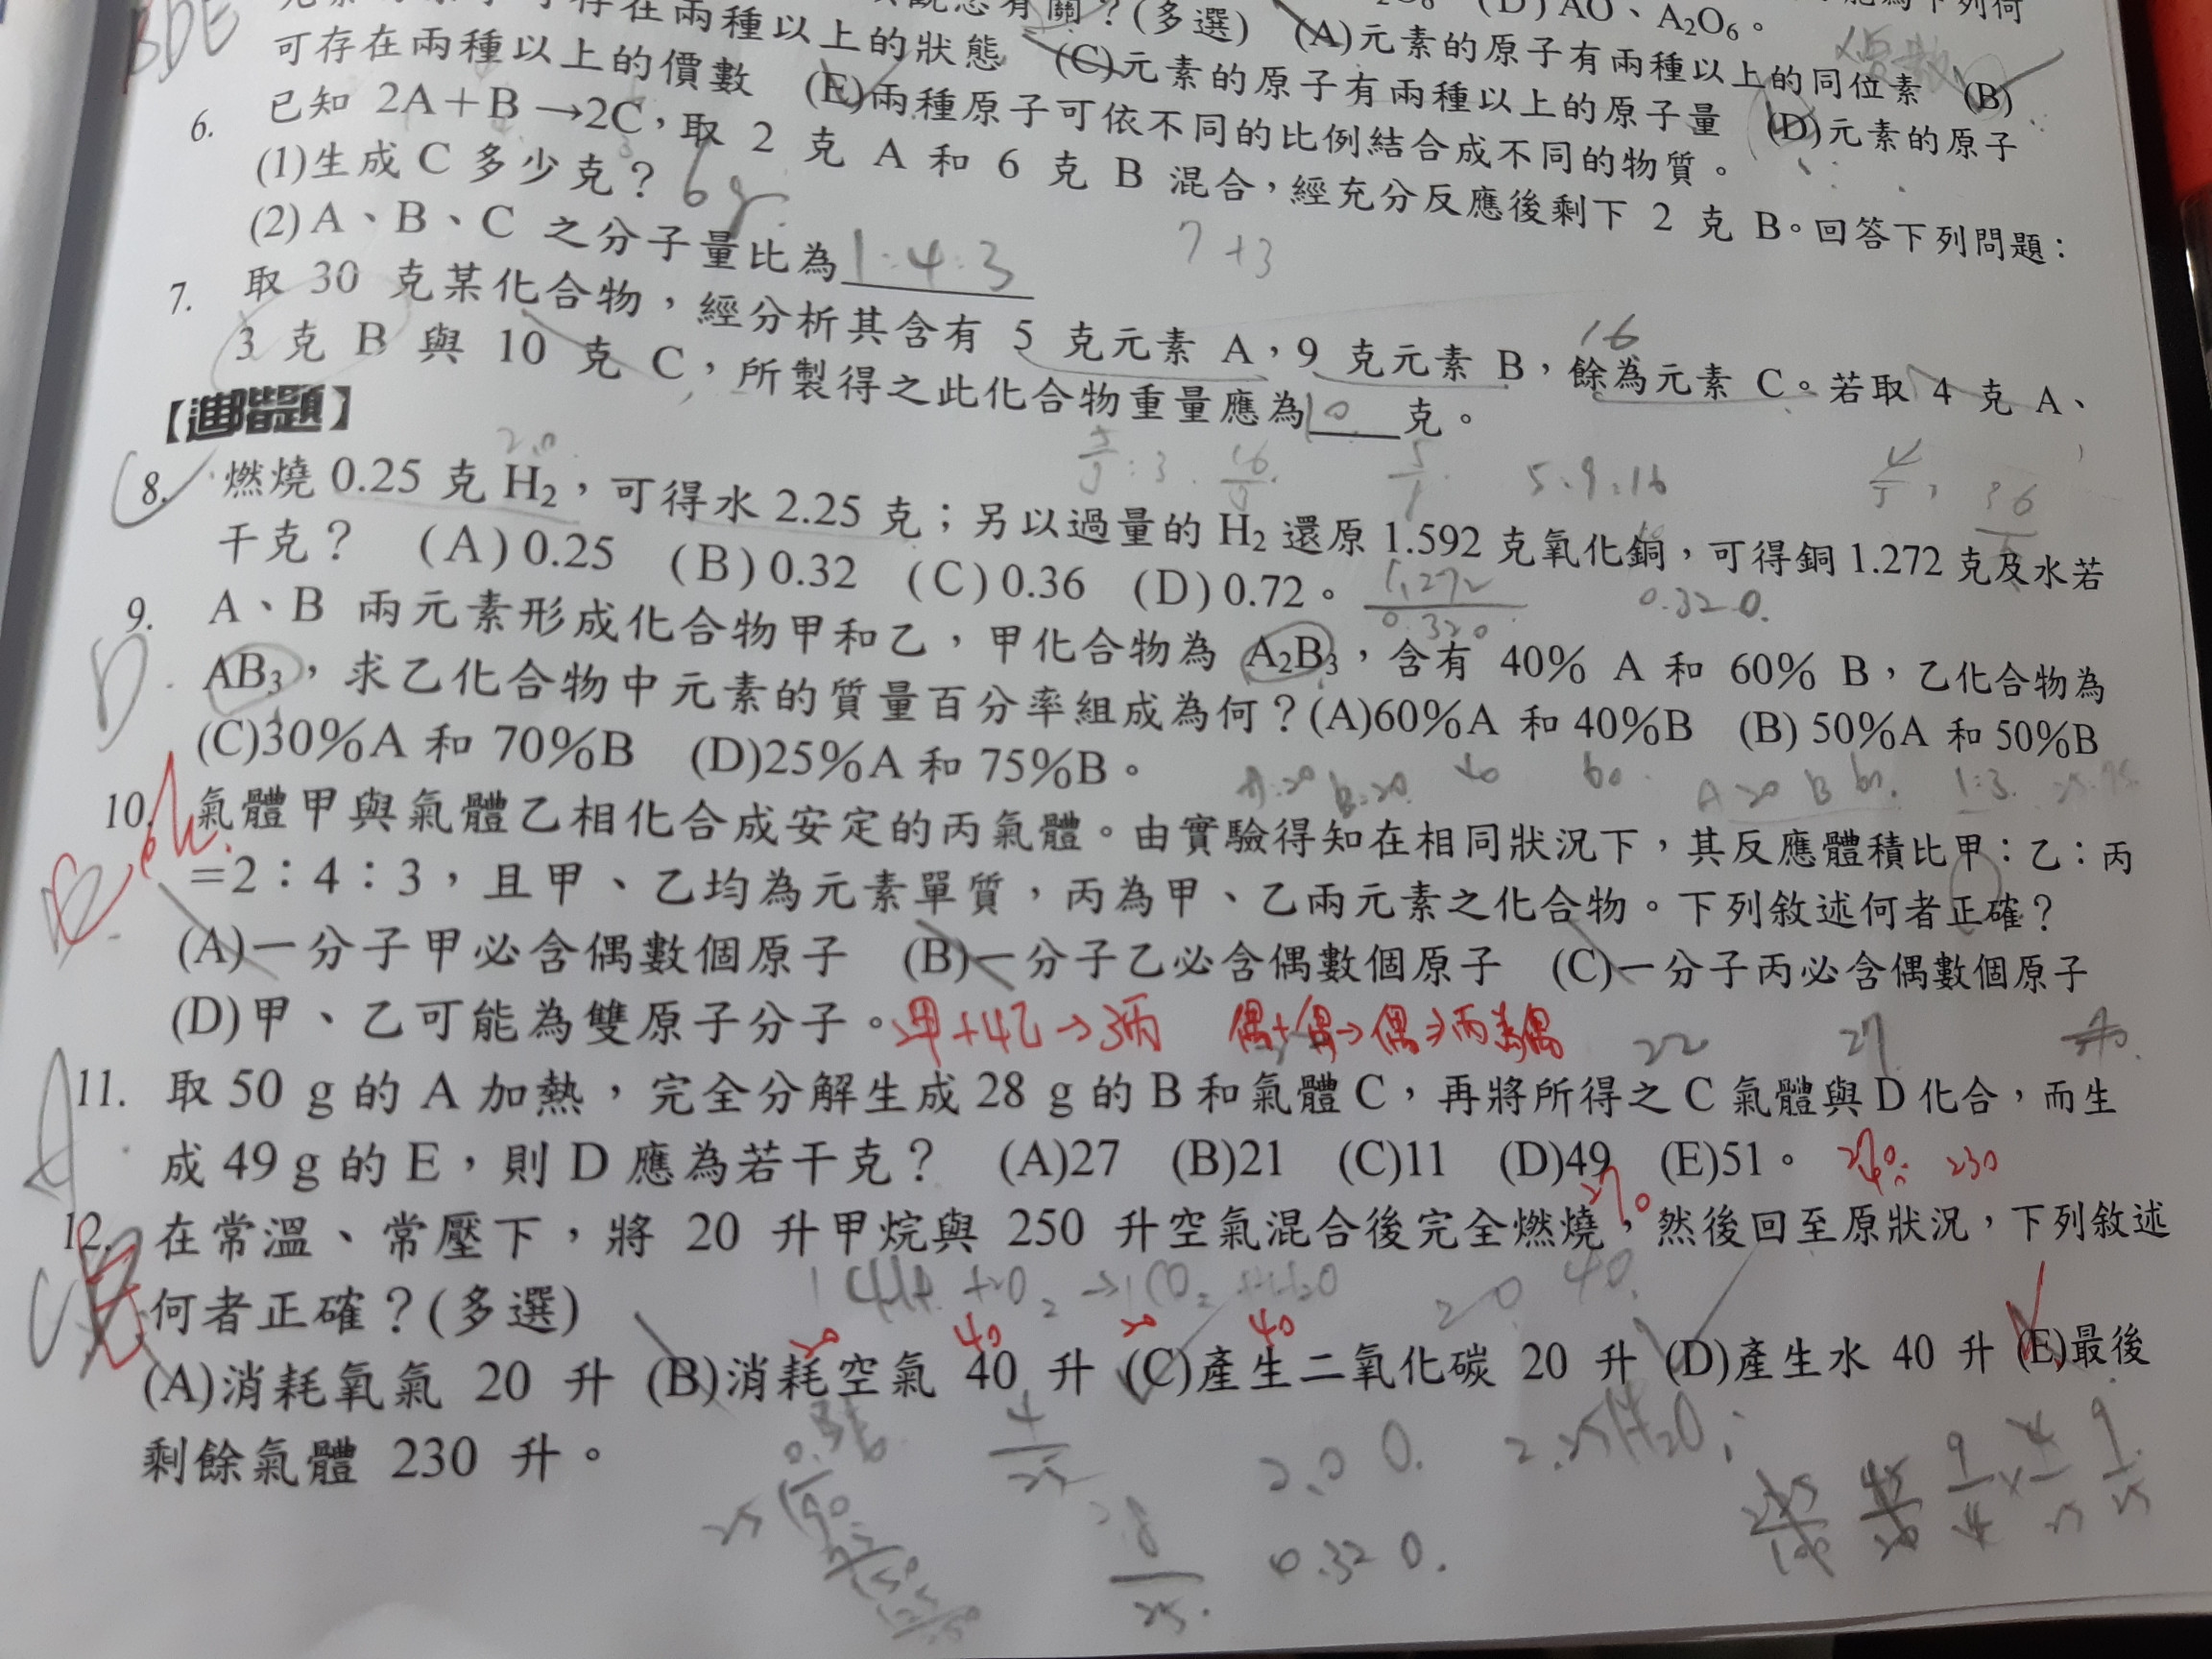 BDE
可存在兩種以上的狀態 (C)元素的原子有兩種以上的原子量 (D)元素的原子
可存在兩種以上的價數 (E)兩種原子可依不同的比例結合成不同的物質。
6. 已知 2A＋B →2C，取 2 克 A 和 6 克 B 混合，經充分反應後剩下 2 克 B。回答下列問題：
(1)生成 C 多少克？ 6g
(2)A、B、C 之分子量比為 1:4:3
7+3
7. 取 30 克某化合物，經分析其含有 5 克元素 A，9 克元素 B，餘為元素 C。若取 4 克 A、
16
3 克 B 與 10 克 C，所製得之此化合物重量應為 10 克。
【進階題】
5:9:16
8. 燃燒 0.25 克 H₂，可得水 2.25 克；另以過量的 H₂ 還原 1.592 克氧化銅，可得銅 1.272 克及水若
干克？ (A)0.25 (B)0.32 (C)0.36 (D)0.72。
1.272
0.320
0.32 O.
9. A、B 兩元素形成化合物甲和乙，甲化合物為 A₂B₃，含有 40% A 和 60% B，乙化合物為
D
AB₃，求乙化合物中元素的質量百分率組成為何？(A)60%A 和 40%B (B) 50%A 和 50%B
(C)30%A 和 70%B (D)25%A 和 75%B。
A:20 B:20 40 60 A 20 B 60. 1:3. 25.75.
10. 氣體甲與氣體乙相化合成安定的丙氣體。由實驗得知在相同狀況下，其反應體積比甲：乙：丙
＝2：4：3，且甲、乙均為元素單質，丙為甲、乙兩元素之化合物。下列敘述何者正確？
(A)一分子甲必含偶數個原子 (B)一分子乙必含偶數個原子 (C)一分子丙必含偶數個原子
(D)甲、乙可能為雙原子分子。 2甲+4乙→3丙 偶+偶→偶⇒丙為偶
22 27
A
11. 取 50 g 的 A 加熱，完全分解生成 28 g 的 B 和氣體 C，再將所得之 C 氣體與 D 化合，而生
成 49 g 的 E，則 D 應為若干克？ (A)27 (B)21 (C)11 (D)49 (E)51。
230
270
12. 在常溫、常壓下，將 20 升甲烷與 250 升空氣混合後完全燃燒，然後回至原狀況，下列敘述
何者正確？(多選)
20 40.
20 40 20 40
(A)消耗氧氣 20 升 (B)消耗空氣 40 升 (C)產生二氧化碳 20 升 (D)產生水 40 升 (E)最後
剩餘氣體 230 升。
4
25
2.0 O.
2.25H₂O
0.32 O.